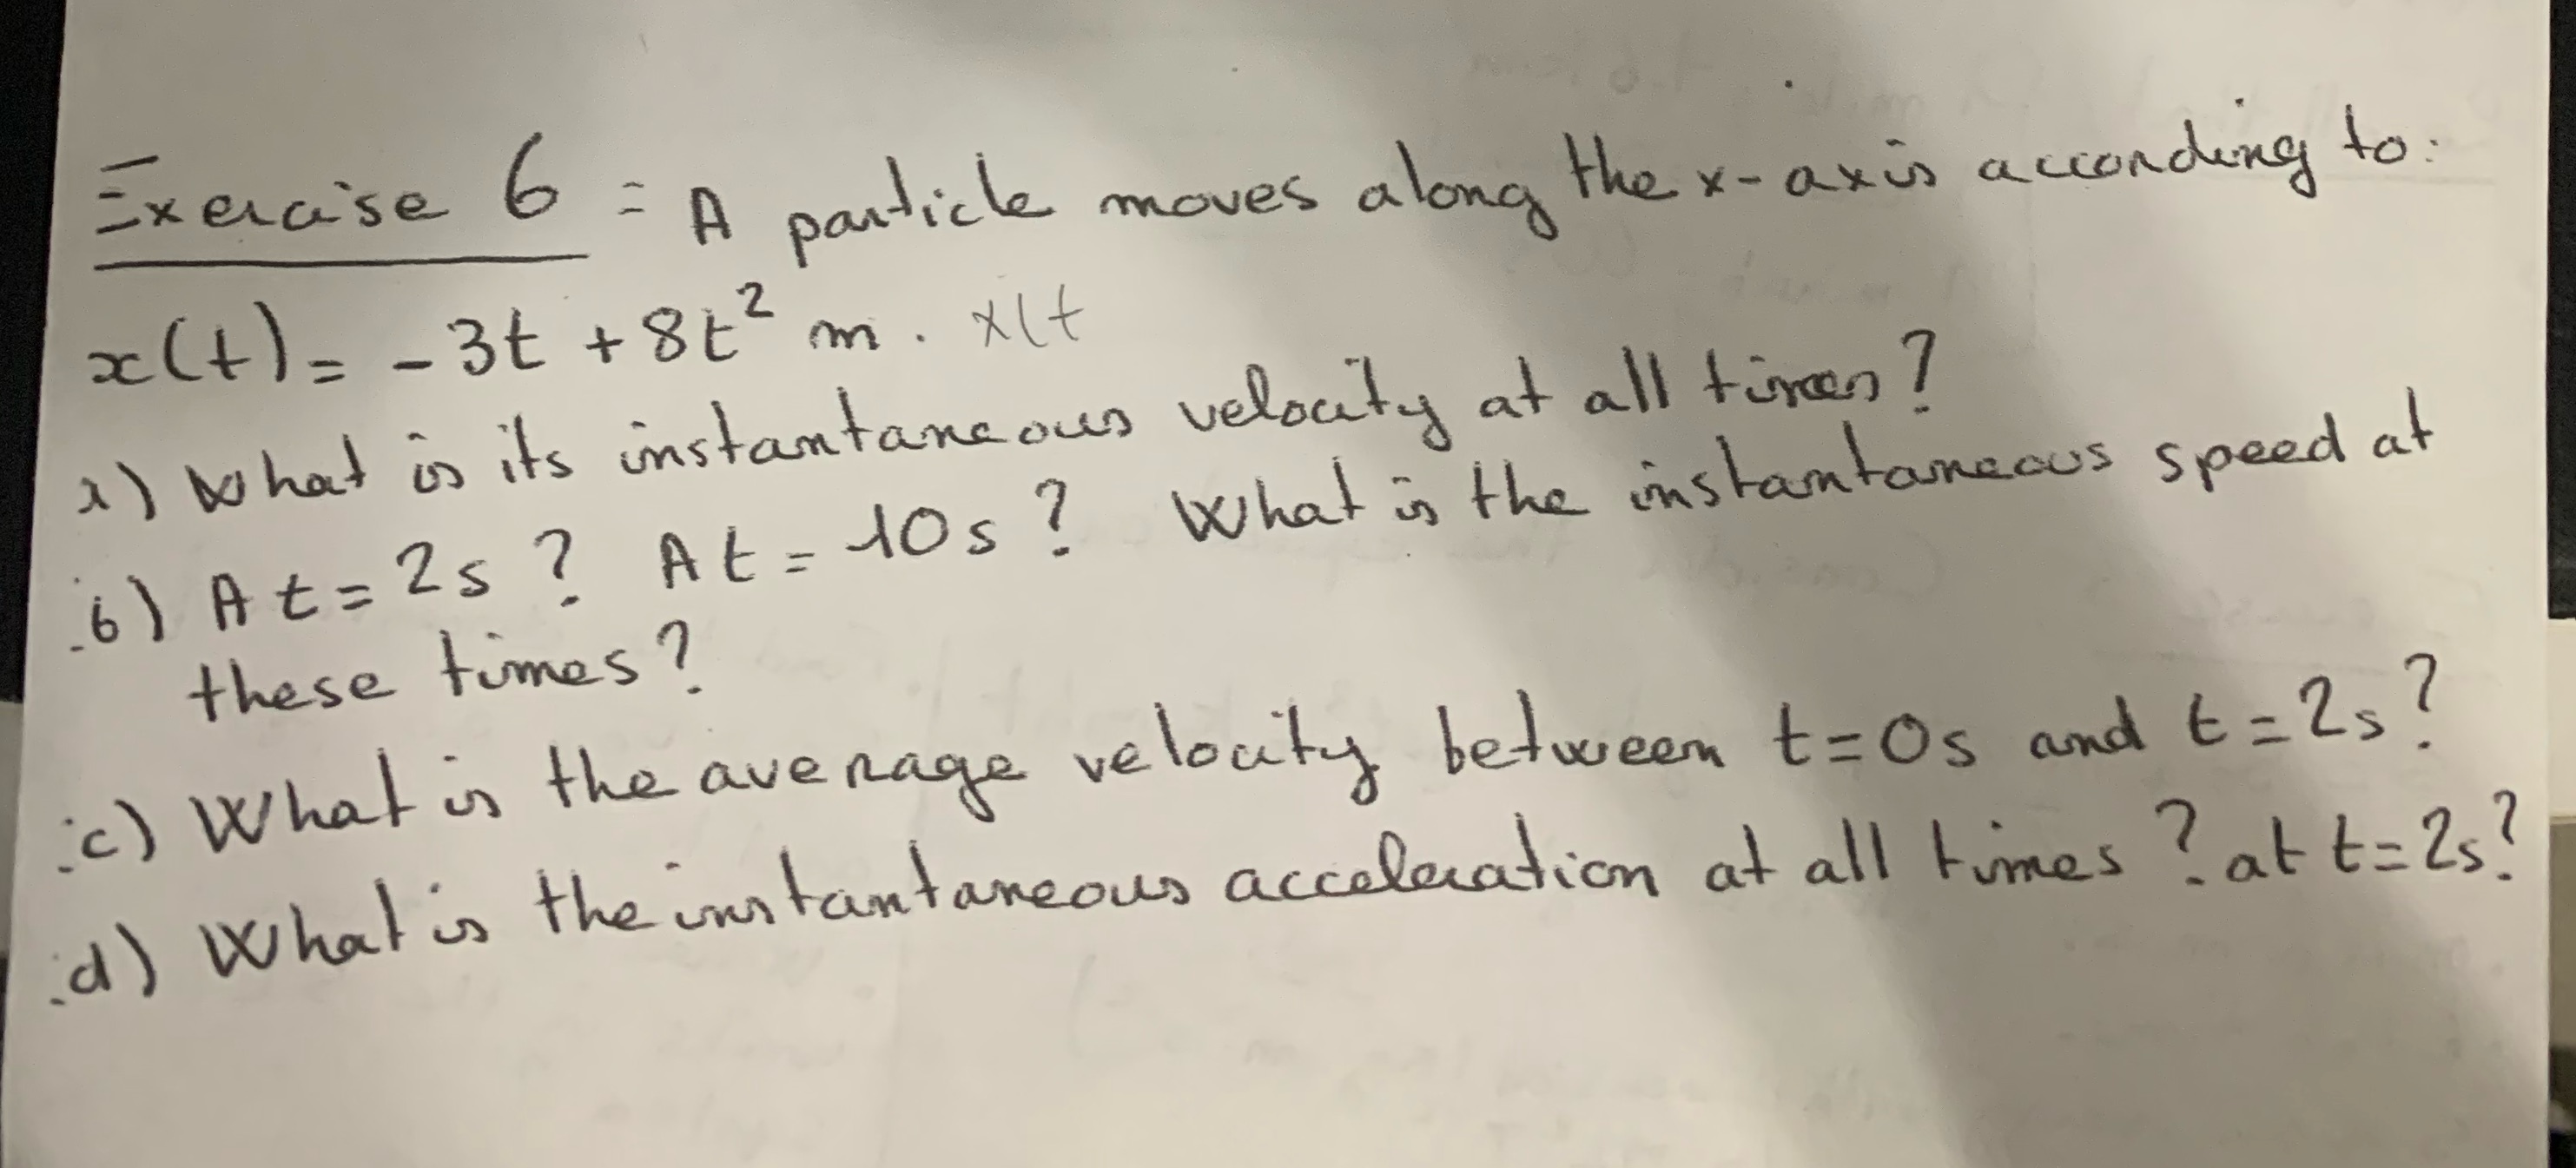 Exercise 6 : A particle moves along the x-axis according to:
x(t) = -3t + 8t² m. x(t
a) What is its instantaneous velocity at all times?
b) At t = 2s ? At t = 10s ? What is the instantaneous speed at
these times?
c) What is the average velocity between t=0s and t=2s?
d) What is the instantaneous acceleration at all times ? at t=2s?